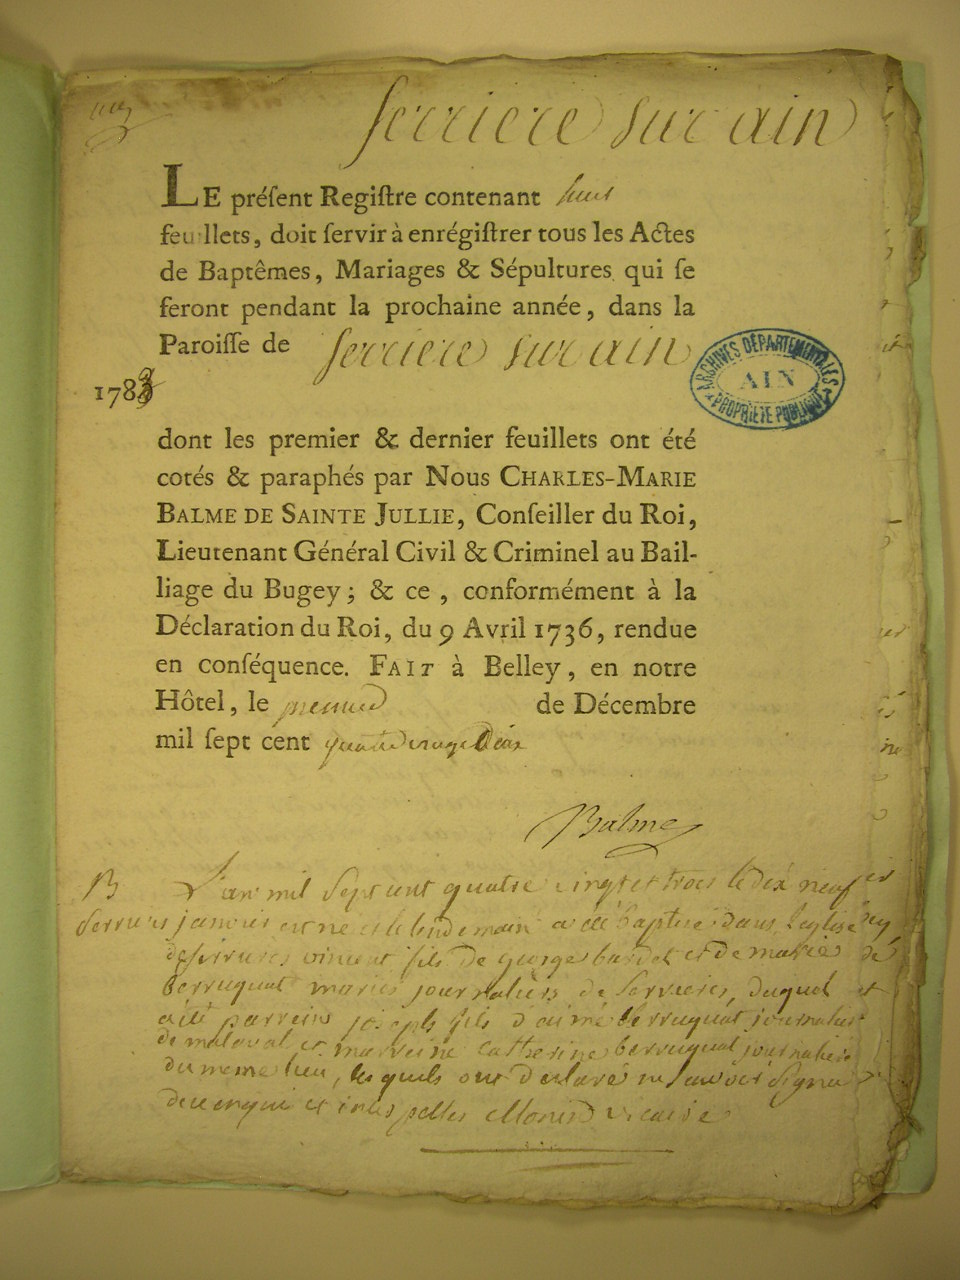 serriere sur ain
LE préſent Regiſtre contenant huit
feuillets, doit ſervir à enrégiſtrer tous les Actes
de Baptêmes, Mariages & Sépultures qui ſe
feront pendant la prochaine année, dans la
Paroiſſe de serriere sur ain
ARCHIVES DÉPARTEMENTALES
AIN
PROPRIÉTÉ PUBLIQUE
1783
dont les premier & dernier feuillets ont été
cotés & paraphés par Nous CHARLES-MARIE
BALME DE SAINTE JULLIE, Conſeiller du Roi,
Lieutenant Général Civil & Criminel au Bail-
liage du Bugey; & ce, conformément à la
Déclaration du Roi, du 9 Avril 1736, rendue
en conſéquence. FAIT à Belley, en notre
Hôtel, le premier de Décembre
mil ſept cent quatrevingt Deux
Balme
B L'an mil sept cent quatre vingt et trois le dix neuf
janvier est né et le lendemain a été baptisé dans l'eglise
de serrieres vincent fils de george bardet et de marie
berruquat mariés journaliers de serrieres, duquel
a été parrein joseph fils d'aimé berruquat journalier
de malaval et marreine catherine berruquat journaliere
du meme lieu, les quels ont declaré ne savoir signer
de ce enquis et interpellés Monin vicaire